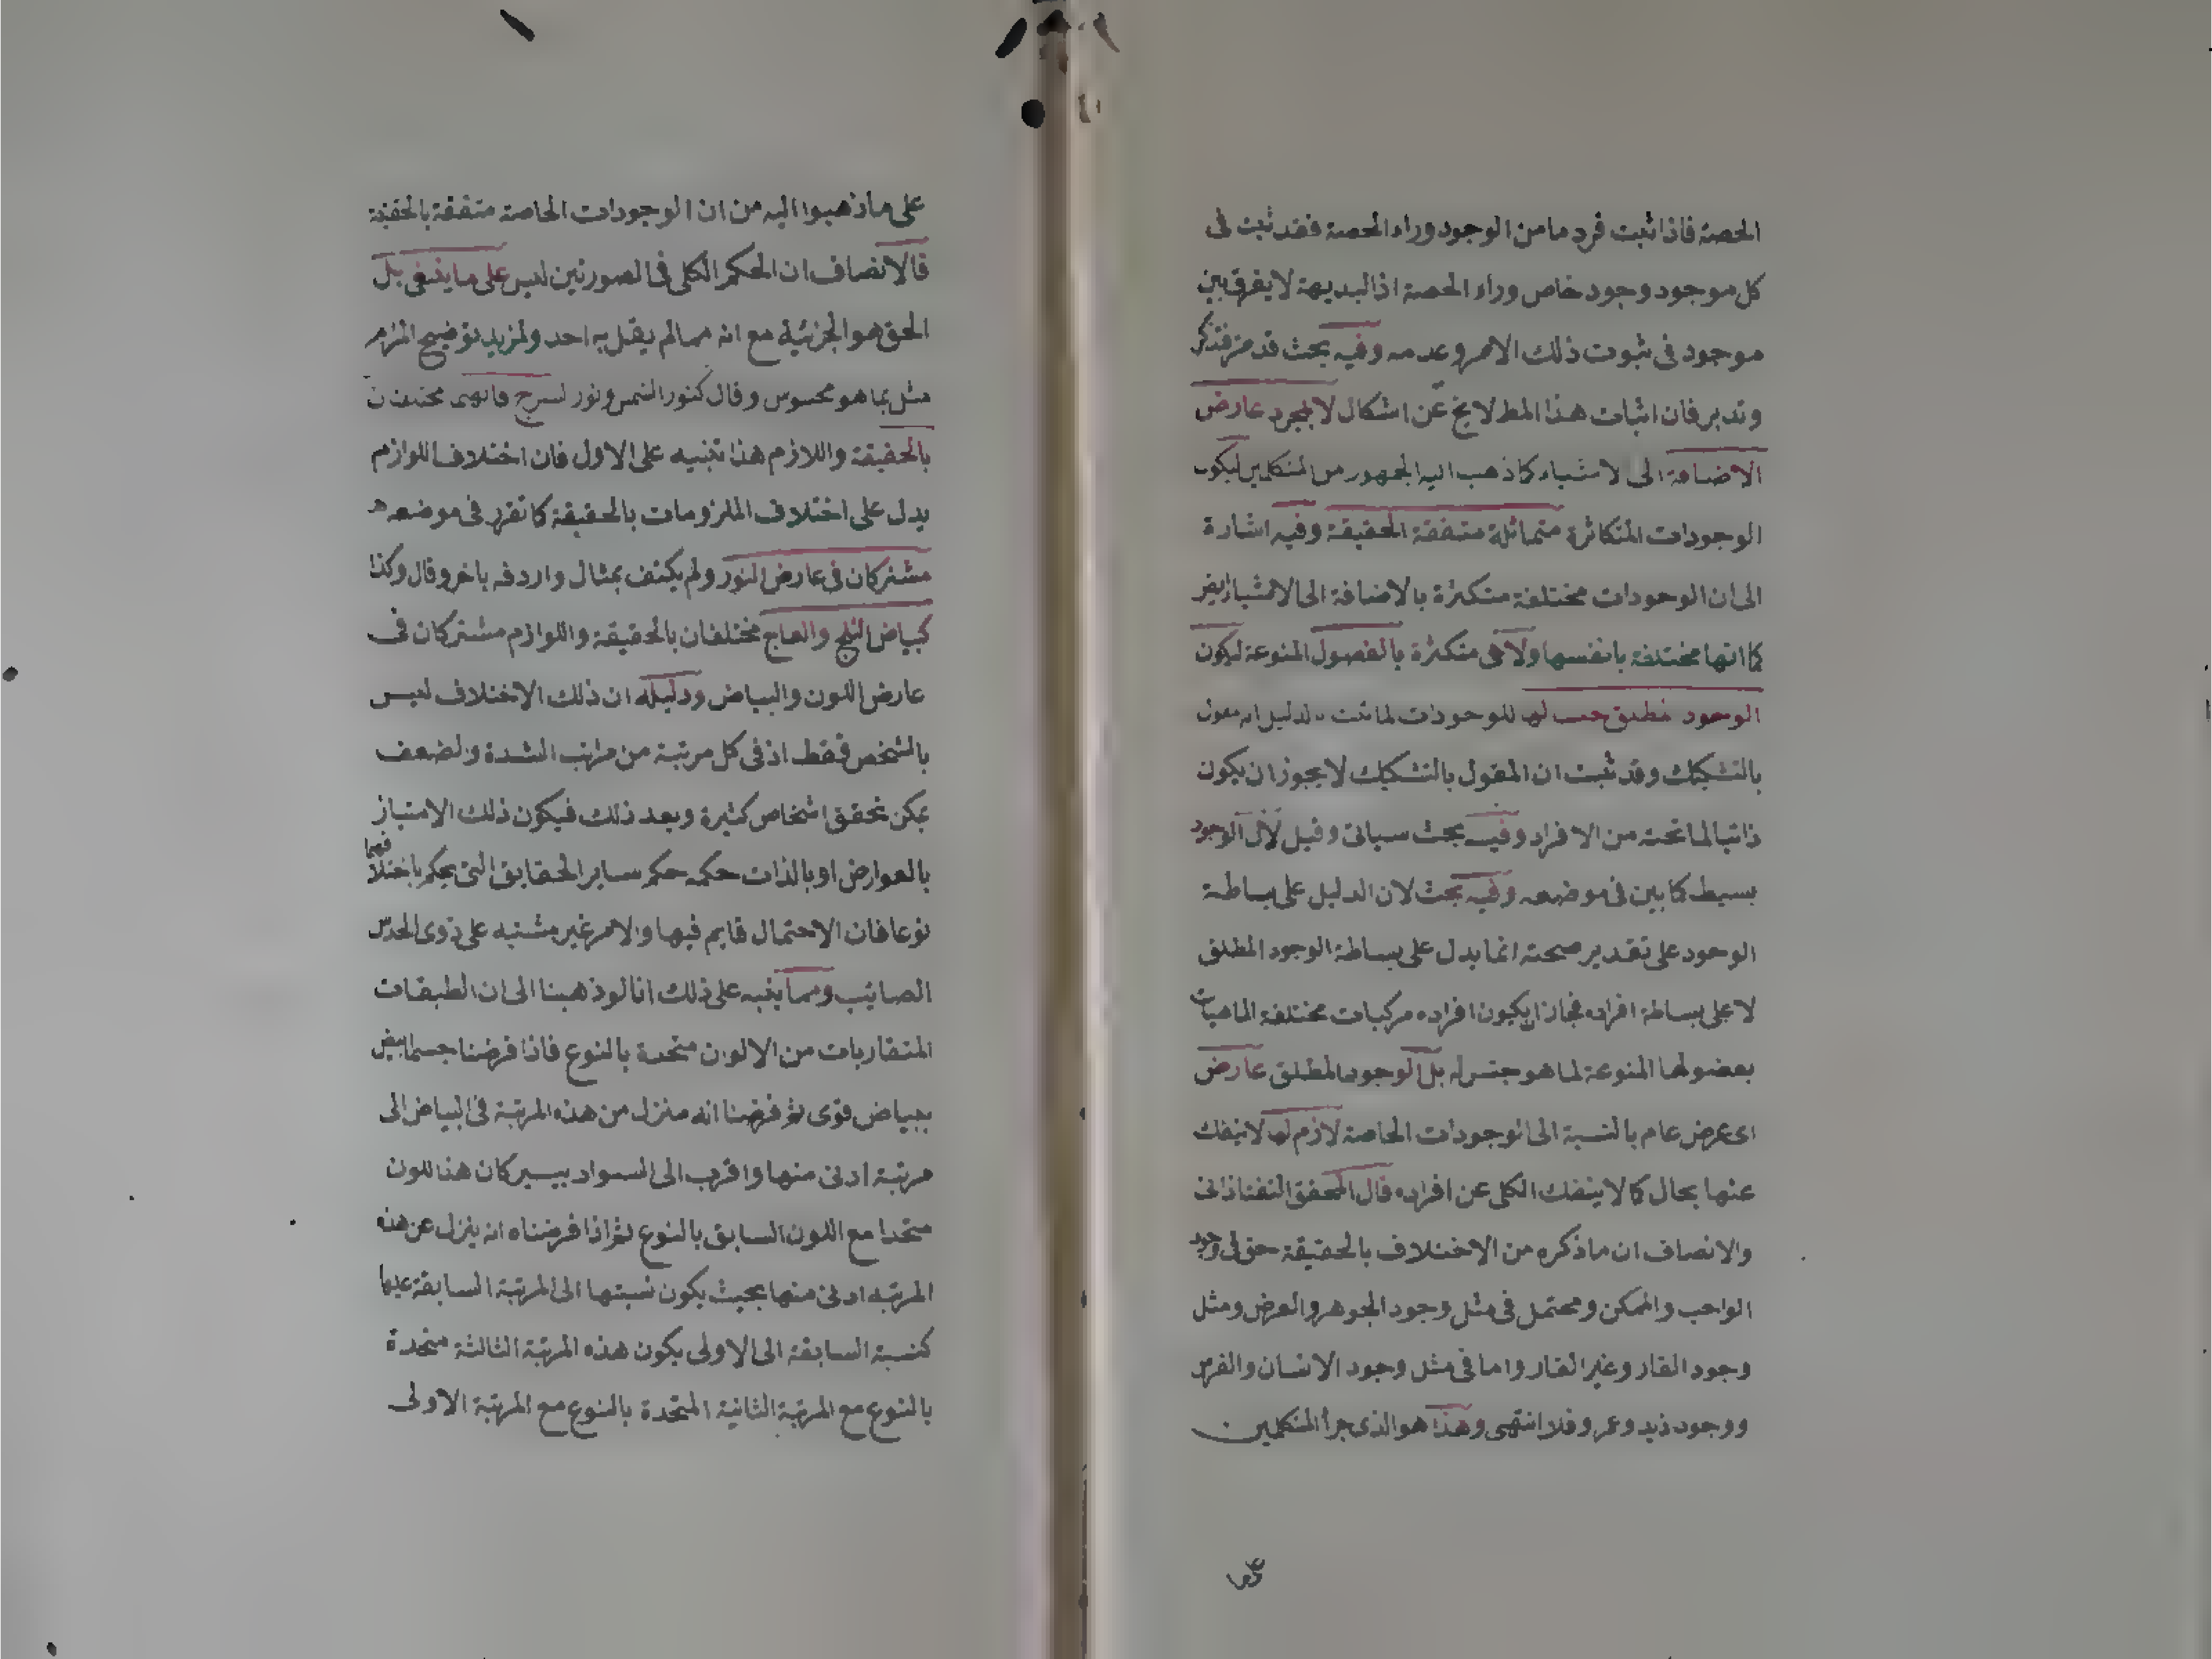 الحصة فاذا ثبت فرد ما من الوجود وراء الحصة فقد ثبت فى
كل موجود وجود خاص وراء الحصة اذ البديهة لا يفرق بين
موجود فى ثبوت ذلك الامر وعدمه وفيه بحث قد مر فتذكر
وتدبر فان اثبات هذا المط لا يخ عن اشكال لا بمجرد عارض
الاضافة الى لاشياء كما ذهب اليه الجمهور من المتكلمين ليكون
الوجودات المتكاثرة متماثلة متفقة الحقيقة وفيه اشارة
الى ان الوجودات مختلفة متكثرة بالاضافة الى الاشياء ايض
كما انها مختلفة بانفسها ولا هى متكثرة بالفصول المنوعة ليكون
الوجود المطلق جنسا لها للوجودات لما ثبت بالدليل انه مقول
بالتشكيك وقد ثبت ان المقول بالتشكيك لا يجوز ان يكون
ذاتيا لما تحته من الافراد وفيه بحث سياتى وقيل لان الوجود
بسيط كما بين فى موضعه وفيه بحث لان الدليل على بساطة
الوجود على تقدير صحته انما يدل على بساطة الوجود المطلق
لا على بساطة افراده فجاز ان يكون افراده مركبات مختلفة الماهيات
بفصولها المنوعة لما هو جنس له بل الوجود المطلق عارض
اى عرض عام بالنسبة الى الوجودات الخاصة لازم لها لا ينفك
عنها بحال كما لا ينفك الكلى عن افراده قال المحقق التفتازانى
والانصاف ان ما ذكره من الاختلاف بالحقيقة حق فى وجود
الواجب والممكن ومحتمل فى مثل وجود الجوهر والعرض ومثل
وجود القار وغير القار واما فى مثل وجود الانسان والفرس
ووجود زيد وعمرو فلا انتهى وهذا هو الذى جرأ المتكلمين
على ما ذهبوا اليه من ان الوجودات الخاصة متفقة بالحقيقة
فالانصاف ان الحكم الكلى فى الصورتين ليس على ما ينبغى بل
الحق هو الجزئية مع انه مما لم يقل به احد ولمزيد توضيح المرام
مثل بما هو محسوس وقال كنور الشمس ونور السرج فانهما مختلفان
بالحقيقة واللازم هذا تنبيه على الاول فان اختلاف اللوازم
يدل على اختلاف الملزومات بالحقيقة كما تقرر فى موضعه
مشتركان فى عارض النور ولم يكتف بمثال واردفه باخر وقال وكذا
كبياض الثلج والعاج مختلفان بالحقيقة واللوازم مشتركان فى
عارض اللون والبياض ودليله ان ذلك الاختلاف ليس
بالشخص فقط اذ فى كل مرتبة من مراتب الشدة والضعف
يمكن تحقق اشخاص كثيرة وبعد ذلك فيكون ذلك الامتياز
بالعوارض او بالذات حكمه حكم ساير الحقايق التى يحكم باختلافها
نوعا فان الاحتمال قايم فيها والامر غير مشتبه على ذوى الحدس
الصايب ومما ينبه على ذلك انا لو ذهبنا الى ان الطبقات
المتقاربات من الالوان متحدة بالنوع فاذا فرضنا جسما ابيض
ببياض قوى ثم فرضنا انه منزل من هذه المرتبة فى البياض الى
مرتبة ادنى منها واقرب الى السواد بيسير كان هذا اللون
متحدا مع اللون السابق بالنوع ثم اذا فرضناه انه ينزل عن هذه
المرتبه ادنى منها بحيث يكون نسبتها الى المرتبة السابقة عليها
كنسبة السابقة الى الاولى يكون هذه المرتبة الثالثة متحدة
بالنوع مع المرتبة الثانية المتحدة بالنوع مع المرتبة الاولى